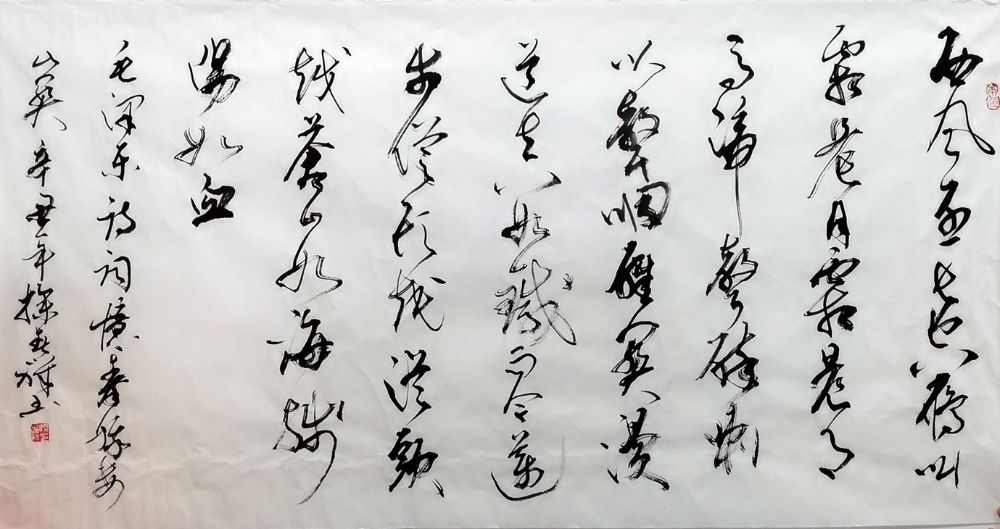 西风烈长空雁叫
霜晨月霜晨月
马蹄聲碎喇
叭聲咽雄关漫
道真如鐵而今迈
步從头越從头
越苍山如海残
陽如血
毛泽东诗词忆秦娥娄
山关辛丑年春祥书